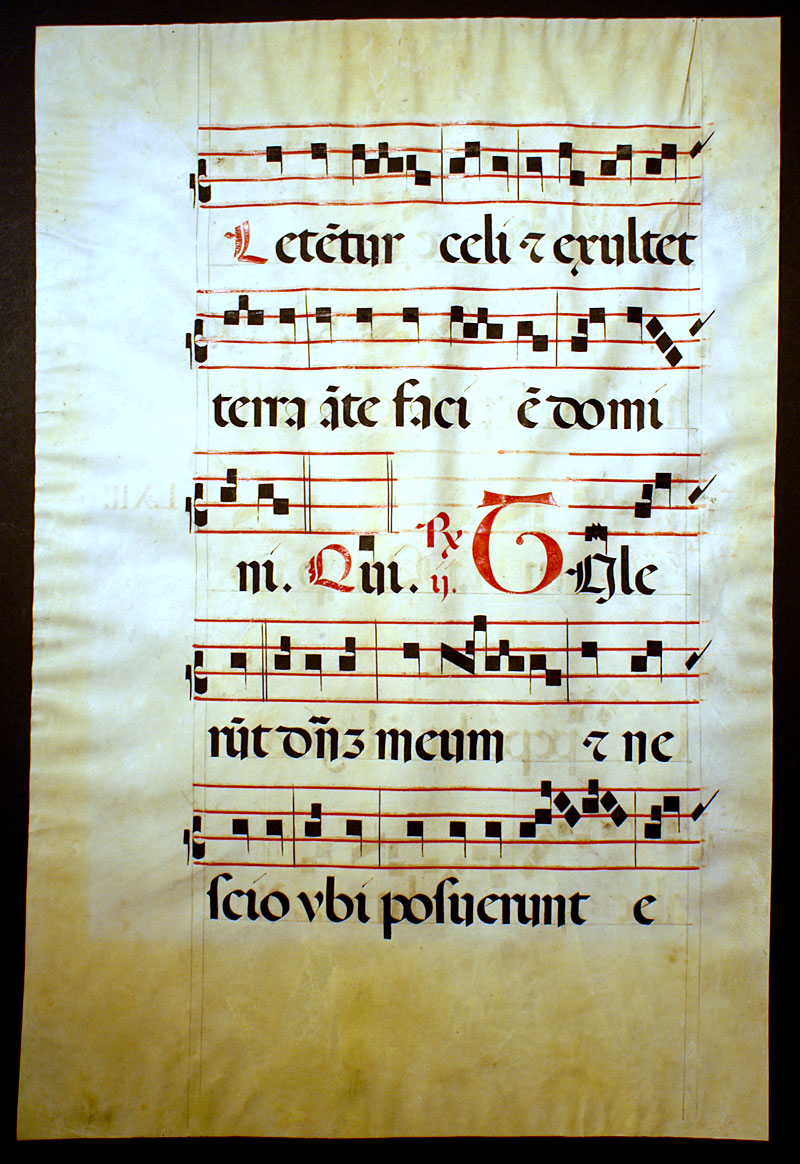 Letẽtur celi ⁊ exultet
terra ãte faci ẽ domi
ni. Qui. ℞ ij. T Vle
rũt dñʒ meum ⁊ ne
ſcio vbi poſuerunt e